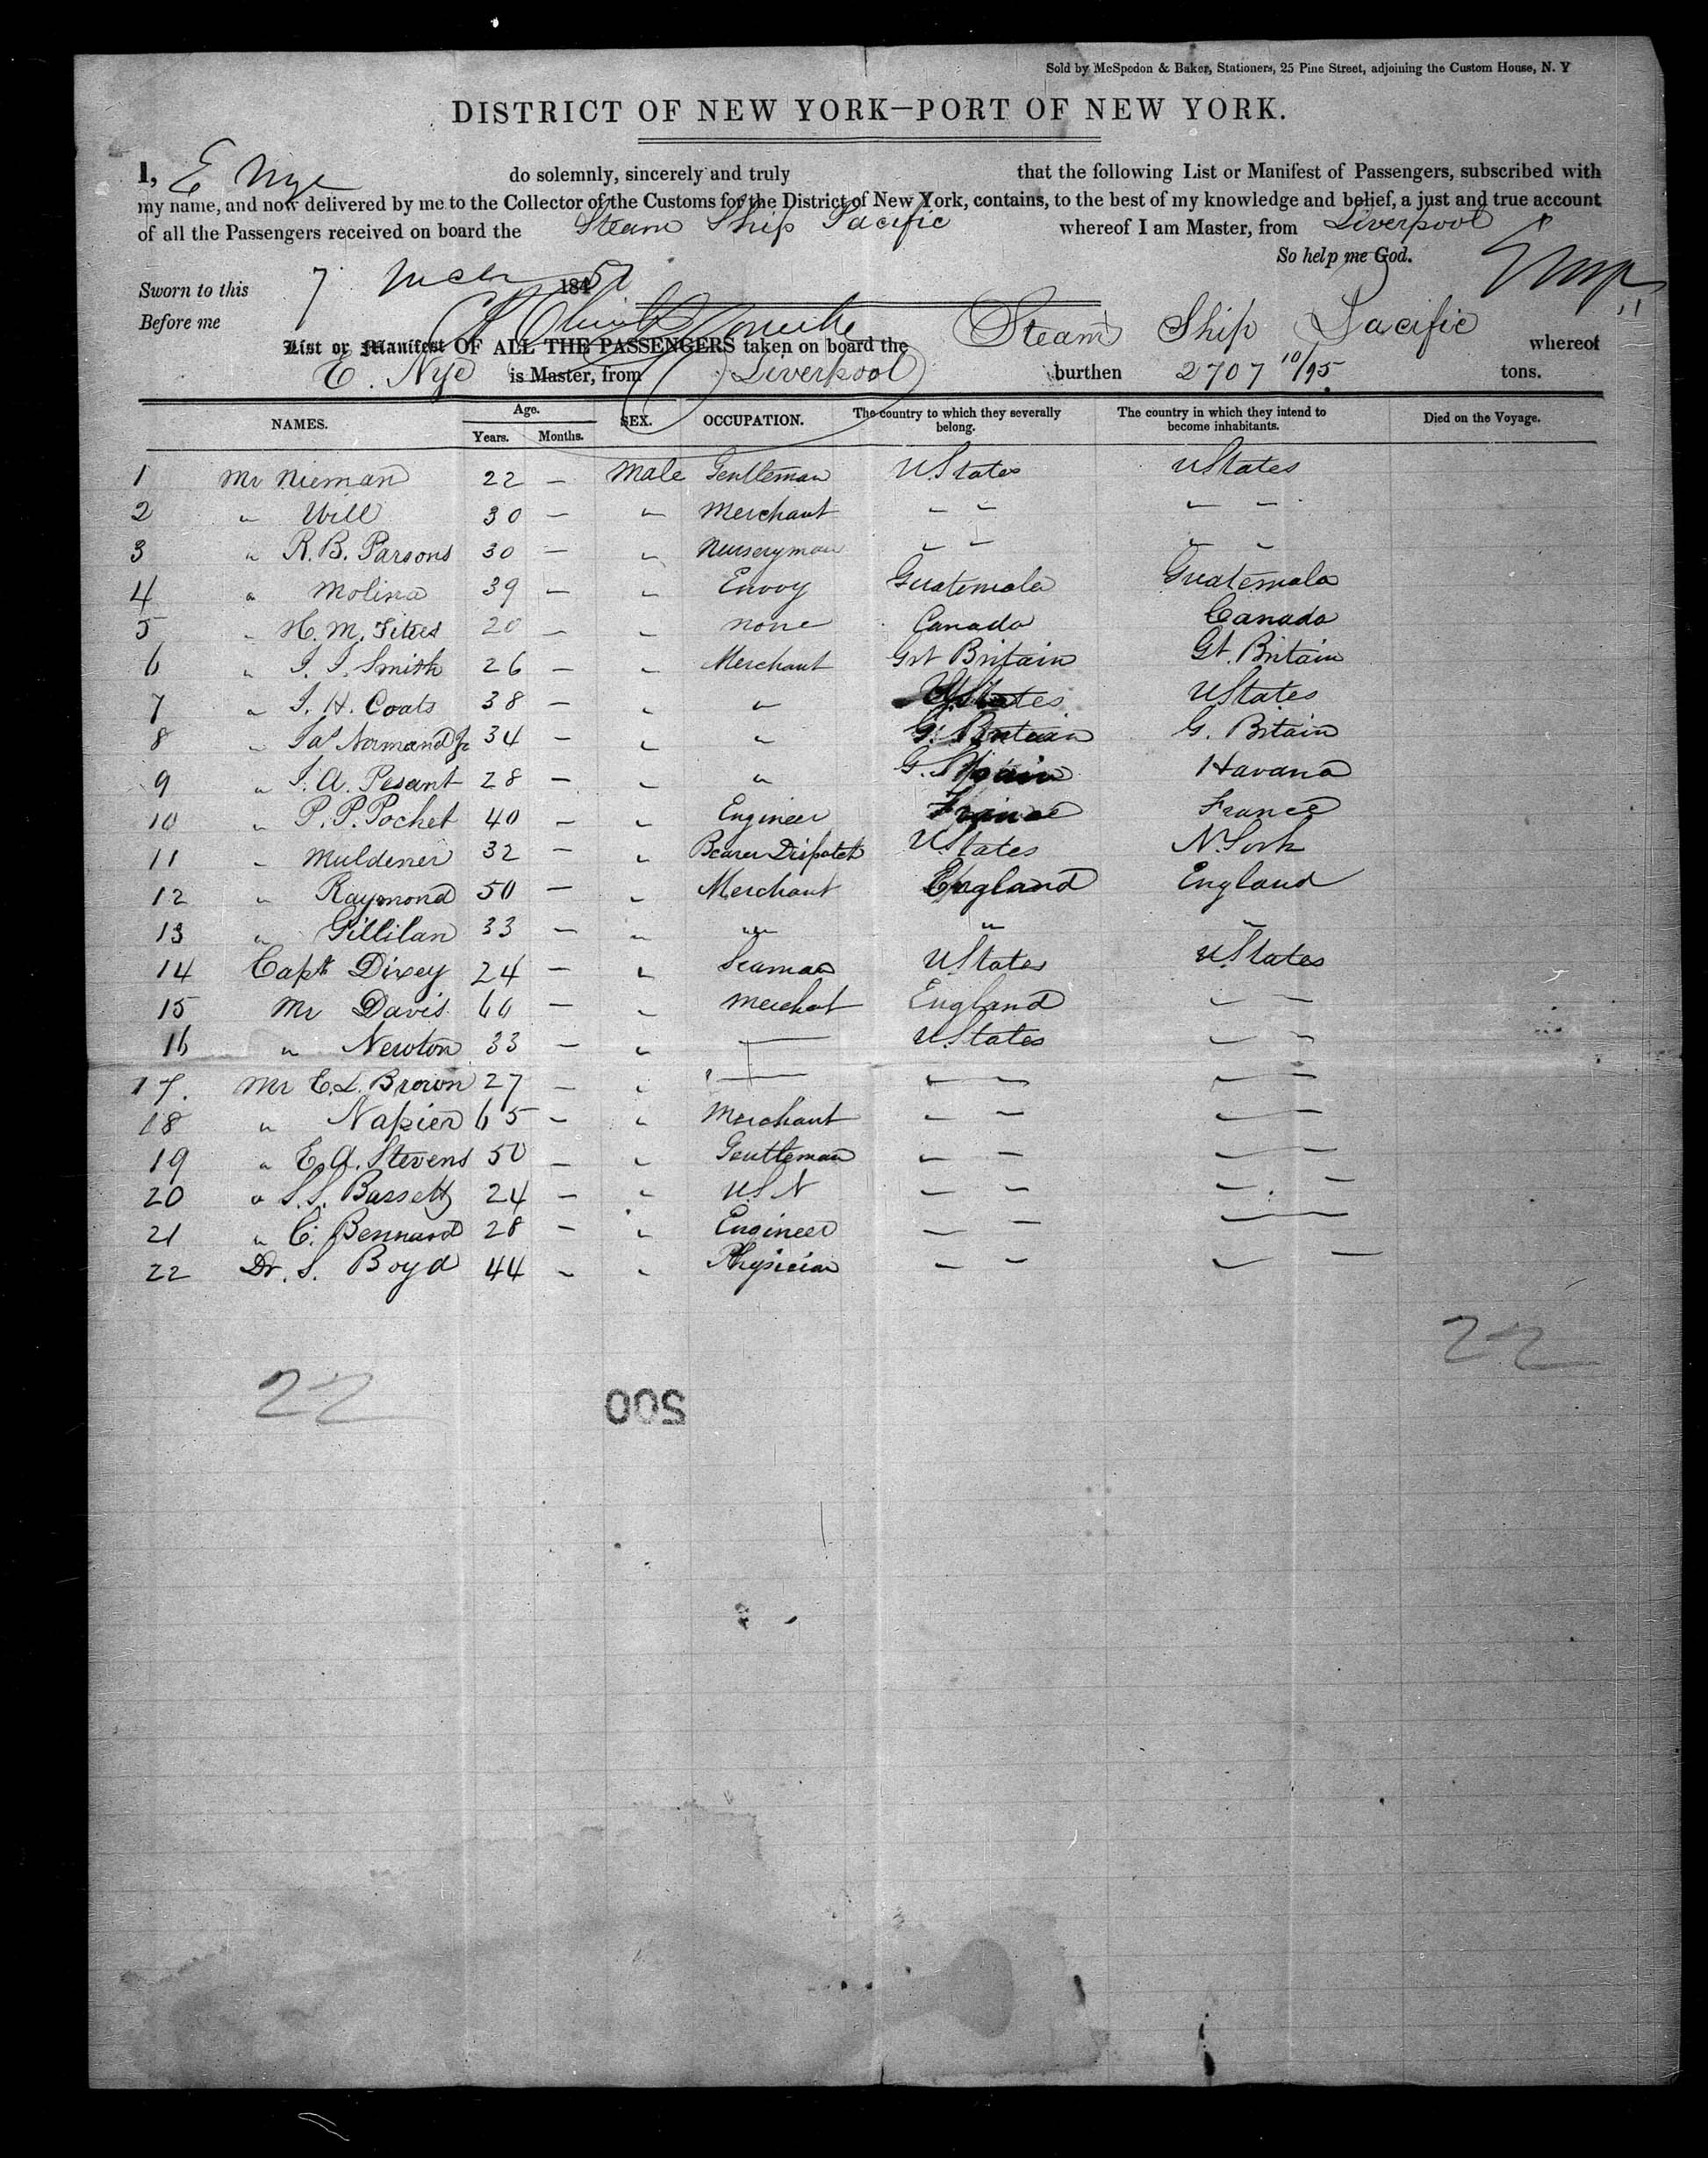 Sold by McSpedon & Baker, Stationers, 25 Pine Street, adjoining the Custom House, N. Y
DISTRICT OF NEW YORK—PORT OF NEW YORK.
I, E Nye do solemnly, sincerely and truly that the following List or Manifest of Passengers, subscribed with
my name, and now delivered by me to the Collector of the Customs for the District of New York, contains, to the best of my knowledge and belief, a just and true account
of all the Passengers received on board the Steam Ship Pacific whereof I am Master, from Liverpool
So help me God.
Sworn to this 7 184
Before me
List or Manifest OF ALL THE PASSENGERS taken on board the Steam Ship Pacific whereof
E. Nye is Master, from Liverpool burthen 2707 10/95 tons.
NAMES. Age. Years. Months. SEX. OCCUPATION. The country to which they severally belong. The country in which they intend to become inhabitants. Died on the Voyage.
1 Mr Nieman 22 — Male Gentleman U.States UStates
2 " Will 30 — " Merchant " " " "
3 " R. B. Parsons 30 — " Nurseryman " " " "
4 " Molina 39 — " Envoy Guatemala Guatemala
5 " H. M. 20 — " none Canada Canada
6 " J. J. Smith 26 — " Merchant Grt Britain Gt. Britain
7 " J. H. Coats 38 — " " UStates UStates
8 " Jas Normand Jr 34 — " " G. Britain G. Britain
9 " J. A. Pesant 28 — " " Spain Havana
10 " P. P. Pochet 40 — " Engineer France France
11 " Muldener 32 — " Bearer Dispatch UStates N. York
12 " Raymond 50 — " Merchant England England
13 " Gillilan 33 — " " " "
14 Capt Dixey 24 — " Seaman UStates UStates
15 Mr Davis 60 — " Merchat England " "
16 " Newton 33 — " — U.States " "
17. Mr E. L. Brown 27 — " — " " " "
18 " Napier 65 — " Merchant " " " "
19 " E. A. Stevens 50 — " Gentleman " " " "
20 " S. S. Bassett 24 — " U.S.N " " " "
21 " C. Bennard 28 — " Engineer " " " "
22 Dr. S. Boyd 44 — " Physician " " " "
22
22
500